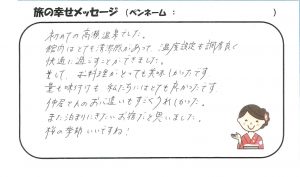 旅の幸せメッセージ（ペンネーム： ）
初めての高湯温泉でした。
館内はとても清潔感があって 温度設定も調度良く
快適に過ごすことができました。
そして、お料理がとっても美味しかったです
量も味付けも 私たちにはとても良かったです
仲居さんのお心遣いもすごくうれしかった。
また泊まりにきたいお宿だと思いました。
桜の季節いいですね！